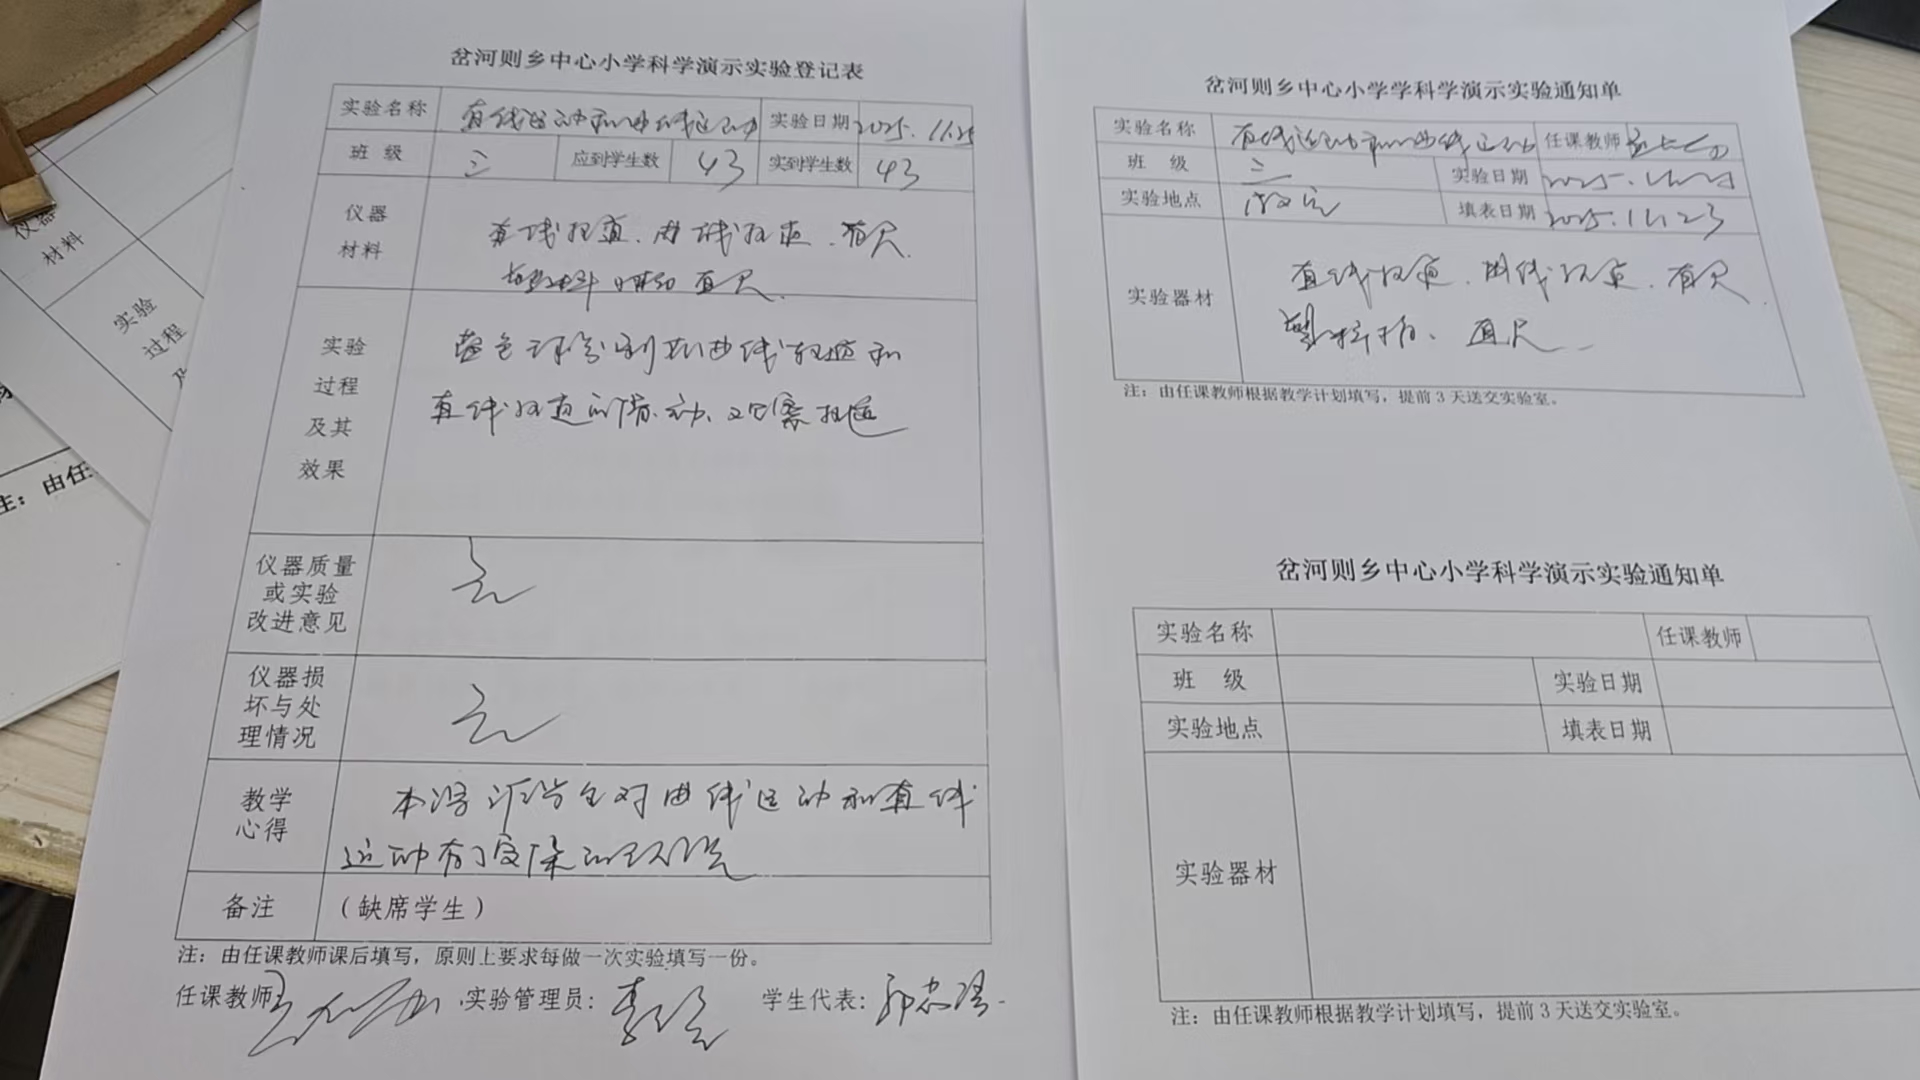 岔河则乡中心小学科学演示实验登记表
实验名称 直线运动和曲线运动 实验日期 2025.11.25
班 级 三 应到学生数 43 实到学生数 43
仪器材料 直线轨道、曲线轨道、直尺
实验过程及其效果 蓝色球分别在曲线轨道和
直线轨道
仪器质量或实验改进意见 无
仪器损坏与处理情况 无
教学心得 本课让学生对曲线运动和直线
运动有了更深的认识
备注 (缺席学生)
注：由任课教师课后填写，原则上要求每做一次实验填写一份。
任课教师 实验管理员： 学生代表：
岔河则乡中心小学学科学演示实验通知单
实验名称 直线运动和曲线运动 任课教师
班 级 三 实验日期 2025.11.25
实验地点 填表日期 2025.11.23
实验器材 直线轨道、曲线轨道、直尺
注：由任课教师根据教学计划填写，提前3天送交实验室。
岔河则乡中心小学科学演示实验通知单
实验名称 任课教师
班 级 实验日期
实验地点 填表日期
实验器材
注：由任课教师根据教学计划填写，提前3天送交实验室。
仪器
材料
实验
过程
及
注：由任